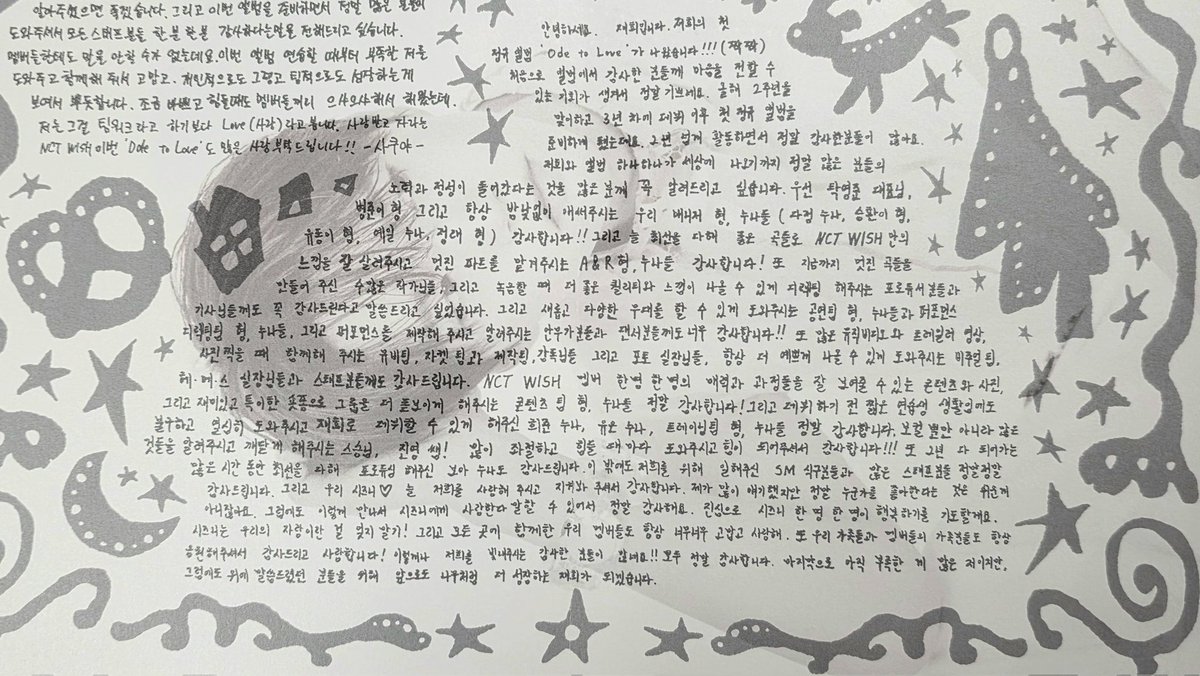 알아주셨으면 좋겠습니다. 그리고 이번 앨범을 준비하면서 정말 많은 분들이
도와주셔서 모든 스태프분들 한 분 한 분 감사하다는 말을 전해드리고 싶습니다.
멤버들한테도 말을 안할 수가 없는데요. 이번 앨범 연습할 때부터 부족한 저를
도와주고 함께해 줘서 고맙고. 개인적으로도 그렇고 팀적으로도 성장하는게
보여서 뿌듯합니다. 조금 바쁘고 힘들때도 멤버들끼리 으쌰으쌰해서 해왔는데.
저는 그걸 팀워크라고 하기보다 Love(사랑)라고 봅니다. 사랑받고 자라는
NCT WISH 이번 'Ode to Love'도 많은 사랑 부탁드립니다!! -사쿠야-
안녕하세요. 재희입니다. 저희의 첫
정규 앨범 'Ode to Love'가 나왔습니다!!! (짝짝)
처음으로 앨범에서 감사한 분들께 마음을 전할 수
있는 기회가 생겨서 정말 기쁘네요. 올해 2주년을
맞이하고 3년 차에 데뷔 이후 첫 정규 앨범을
준비하게 됐는데요. 2년 넘게 활동하면서 정말 감사한분들이 많아요.
저희와 앨범 하나하나가 세상에 나오기까지 정말 많은 분들의
노력과 정성이 들어간다는 것을 많은 분께 꼭 알려드리고 싶습니다. 우선 탁영준 대표님,
병준이 형 그리고 항상 밤낮없이 애써주시는 우리 매니저 형, 누나들 (사점 누나, 승환이 형,
유동이 형, 예일 누나, 정태 형) 감사합니다!! 그리고 늘 최선을 다해 좋은 곡들로 NCT WISH만의
느낌을 잘 살려주시고 멋진 파트를 맡겨주시는 A&R 형, 누나들 감사합니다! 또 지금까지 멋진 곡들을
만들어 주신 수많은 작가님들, 그리고 녹음할 때 더 좋은 퀄리티와 느낌이 나올 수 있게 디렉팅 해주시는 프로듀서분들과
기사님들께도 꼭 감사드린다고 말씀드리고 싶었습니다. 그리고 새롭고 다양한 무대를 할 수 있게 도와주시는 공연팀 형, 누나들과 퍼포먼스
디렉팅팀 형, 누나들, 그리고 퍼포먼스를 제작해 주시고 알려주시는 안무가분들과 댄서분들께도 너무 감사합니다!! 또 많은 뮤직비디오와 트레일러 영상,
사진 찍을 때 함께해 주시는 뮤비팀, 자켓 팀과 제작팀, 감독님들 그리고 포토 실장님들, 항상 더 예쁘게 나올 수 있게 도와주시는 비주얼 팀,
헤·메·스 실장님들과 스태프분들께도 감사드립니다. NCT WISH 멤버 한명 한명의 매력과 과정들을 잘 보여줄 수 있는 콘텐츠와 사진,
그리고 재미있고 특이한 숏폼으로 그룹을 더 돋보이게 해주시는 콘텐츠 팀 형, 누나들 정말 감사합니다! 그리고 데뷔 하기 전 짧은 연습생 생활임에도
불구하고 열심히 도와주시고 재희로 데뷔할 수 있게 해주신 희준 누나, 유은 누나, 트레이닝팀 형, 누나들 정말 감사합니다. 보컬 뿐만 아니라 많은
것들을 알려주시고 깨닫게 해주시는 스승님, 진영 쌤! 많이 좌절하고 힘들 때마다 도와주시고 힘이 되어주셔서 감사합니다!!! 또 2년 다 되어가는
많은 시간 동안 최선을 다해 프로듀싱 해주신 보아 누나도 감사드립니다. 이 밖에도 저희를 위해 일해주신 SM 식구분들과 많은 스태프분들 정말정말
감사드립니다. 그리고 우리 시즈니♡ 늘 저희를 사랑해 주시고 지켜봐 주셔서 감사합니다. 제가 많이 얘기했지만 정말 누군가를 좋아한다는 것은 쉬운게
아니잖아요. 그럼에도 이렇게 만나서 시즈니에게 사랑한다 말할 수 있어서 정말 감사해요. 진심으로 시즈니 한 명 한 명이 행복하기를 기도할게요.
시즈니는 우리의 자랑이란 걸 잊지 말기! 그리고 모든 곳에 함께한 우리 멤버들도 항상 너무너무 고맙고 사랑해. 또 우리 가족들과 멤버들의 가족분들도 항상
응원해주셔서 감사드리고 사랑합니다! 이렇게나 저희를 빛내주시는 감사한 분들이 많네요!! 모두 정말 감사합니다. 마지막으로 아직 부족한 게 많은 저이지만,
그럼에도 위에 말씀드렸던 분들을 위해 앞으로도 나무처럼 더 성장하는 재희가 되겠습니다.